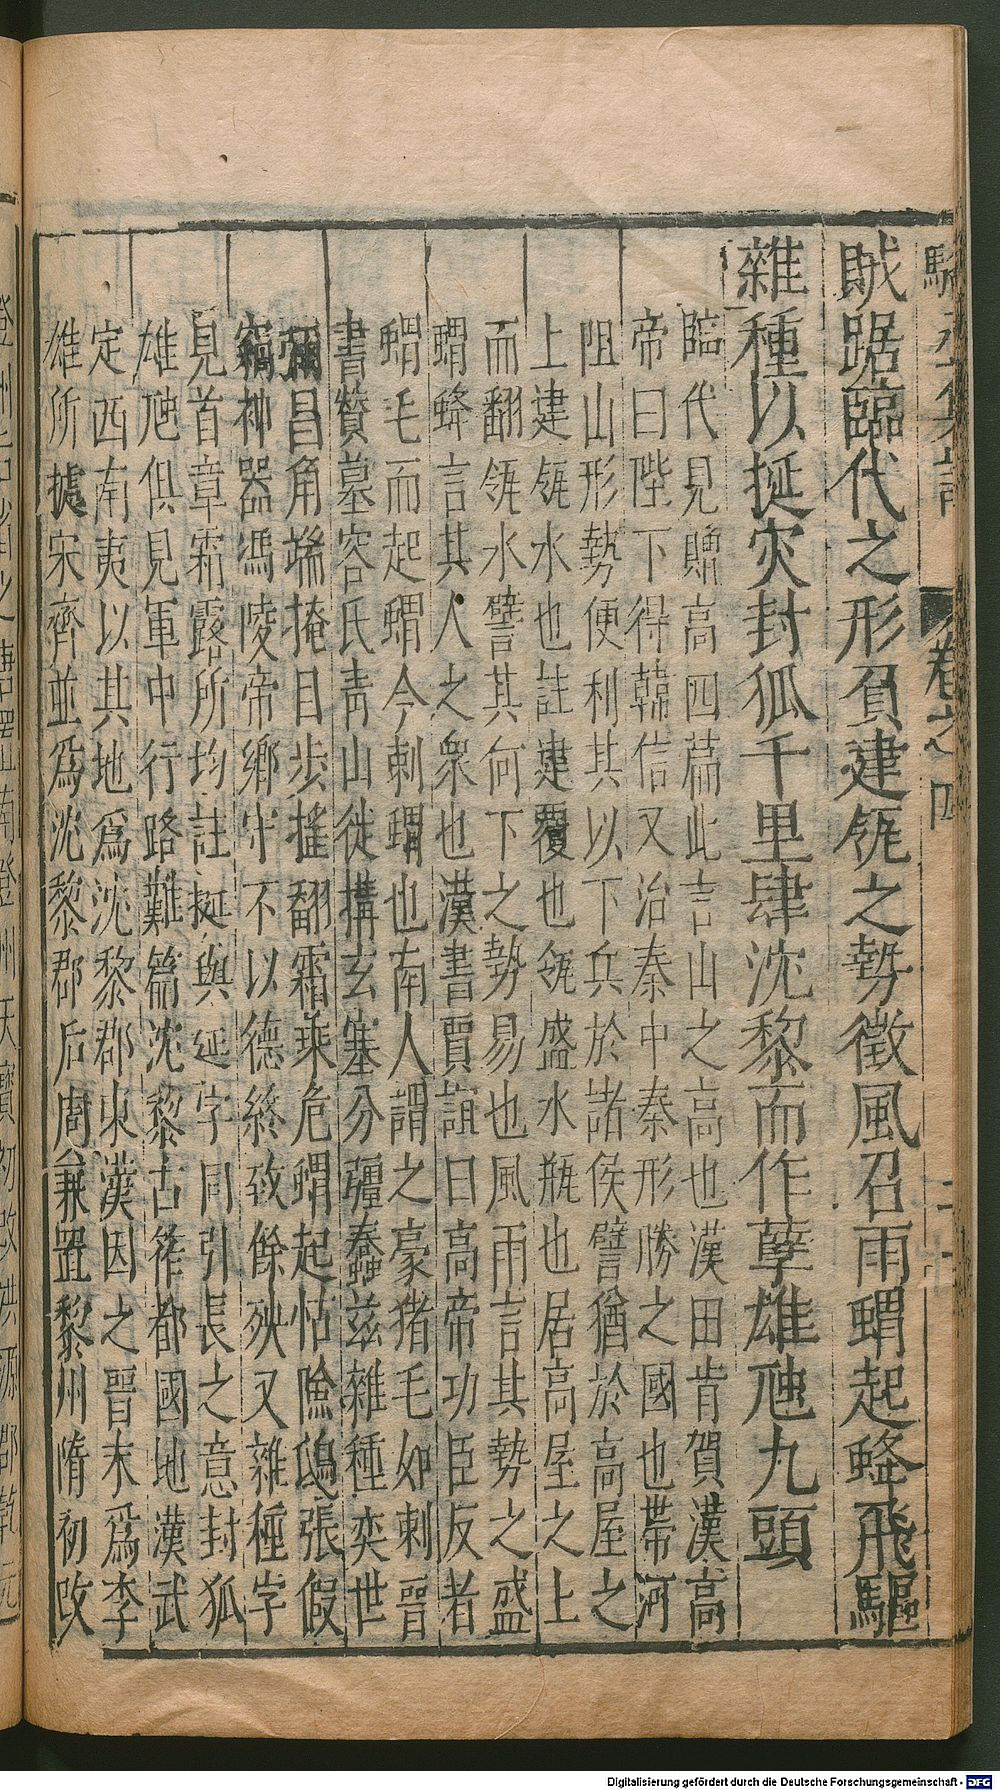 賊踞臨代之形負建瓴之勢徵風召雨蝟起蜂飛驅
雜種以挻灾封狐千里肆沈黎而作孽雄虺九頭
臨代見贈高四篇此言山之高也漢田肯賀漢高
帝曰陛下得韓信又治秦中秦形勝之國也帶河
阻山形勢便利其以下兵於諸侯譬猶於高屋之
上建瓴水也註建覆也瓴盛水瓶也居高屋之上
而翻瓴水譬其何下之勢易也風雨言其勢之盛
蝟蜂言其人之衆也漢書賈誼曰高帝功臣反者
蝟毛而起蝟今刺蝟也南人謂之豪猪毛如刺晉
書贊慕容氏青山徙搆玄塞分疆蠢茲雜種奕世
彌昌角端掩目步搖翻霜乗危蝟起怙險鴟張假
竊神器馮陵帝鄉守不以德終致餘殃又雜種字
見首章霜露所均註挻與延字同引長之意封狐
雄虺俱見軍中行路難篇沈黎古筰都國地漢武
定西南夷以其地爲沈黎郡東漢因之晉末爲李
雄所據宋齊並爲沈黎郡后周兼置黎州隋初改
卷之四
Digitalisierung gefördert durch die Deutsche Forschungsgemeinschaft - DFG